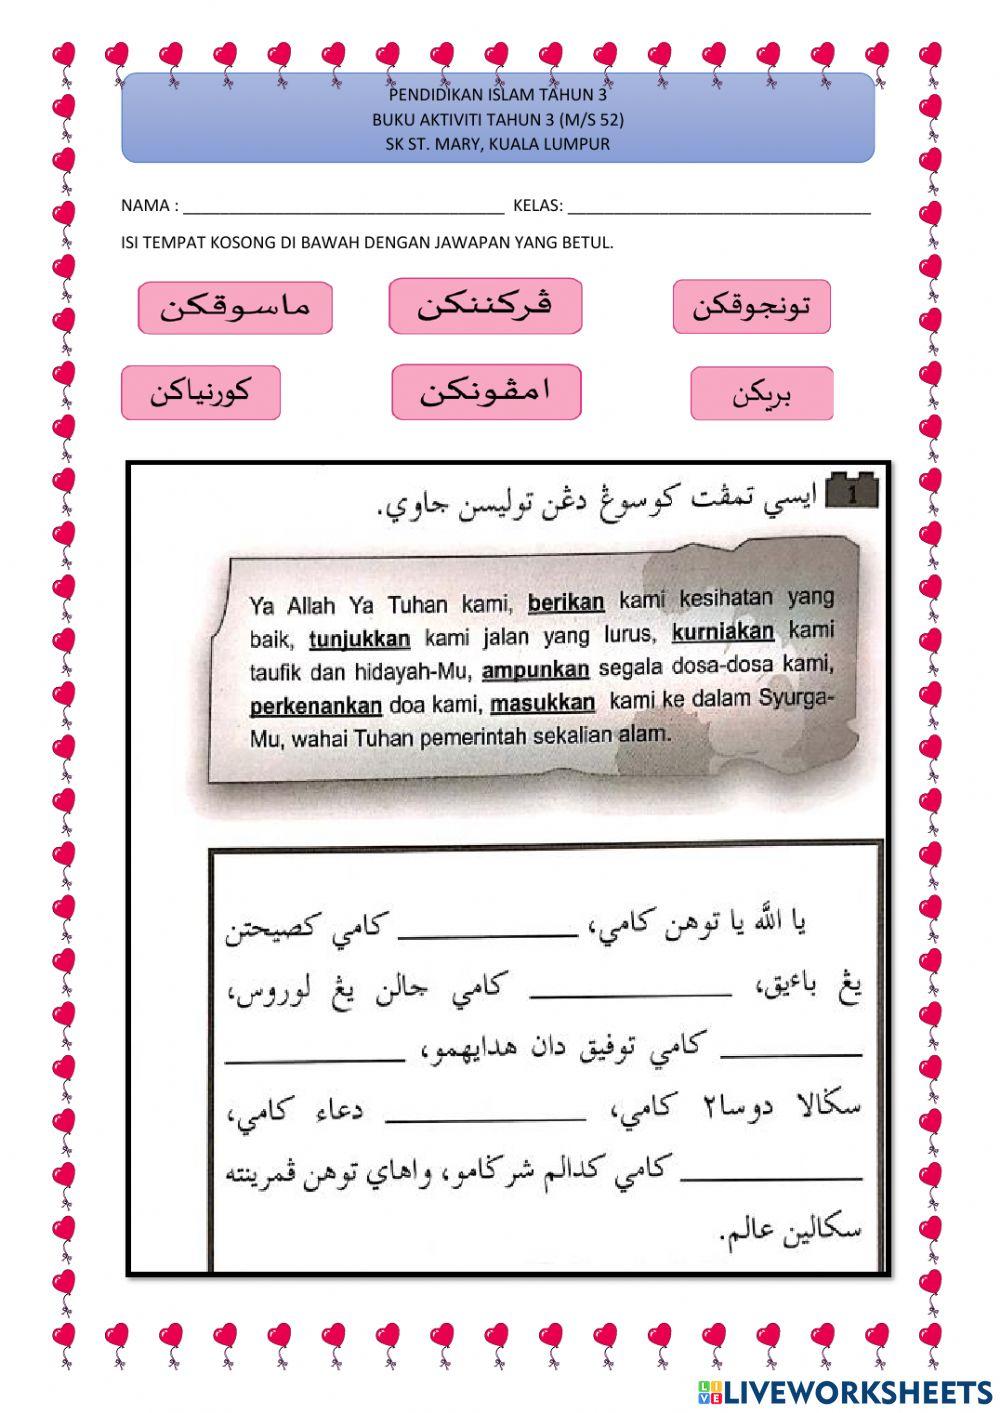 PENDIDIKAN ISLAM TAHUN 3
BUKU AKTIVITI TAHUN 3 (M/S 52)
SK ST. MARY, KUALA LUMPUR
NAMA : ______________ KELAS: ______________
ISI TEMPAT KOSONG DI BAWAH DENGAN JAWAPAN YANG BETUL.
ماسوقكن
ڤركننكن
تونجوقكن
كورنياكن
امڤونكن
بريكن
1 ايسي تمڤت كوسوڠ دڠن توليسن جاوي.
Ya Allah Ya Tuhan kami, berikan kami kesihatan yang
baik, tunjukkan kami jalan yang lurus, kurniakan kami
taufik dan hidayah-Mu, ampunkan segala dosa-dosa kami,
perkenankan doa kami, masukkan kami ke dalam Syurga-
Mu, wahai Tuhan pemerintah sekalian alam.
يا الله يا توهن كامي، ______________ كامي كصيحتن
يڠ باءيق، ______________ كامي جالن يڠ لوروس،
______________ كامي توفيق دان هدايهمو، ______________
سڬالا دوسا٢ كامي، ______________ دعاء كامي،
______________ كامي كدالم شرڬامو، واهاي توهن ڤمرينته
سكالين عالم.
LIVE LIVEWORKSHEETS